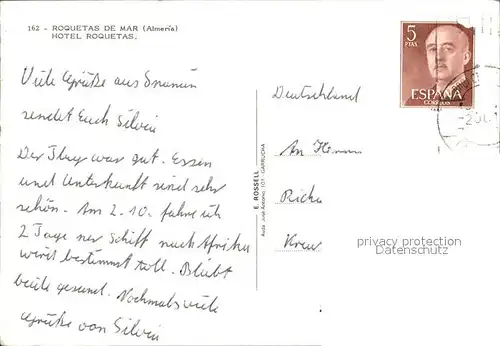 162 - ROQUETAS DE MAR (Almería)
HOTEL ROQUETAS.
Viele Grüße aus Spanien
sendet Euch Silvia
Der Flug war gut. Essen
und Unterkunft sind sehr
schön. Am 2.10. fahre ich
2 Tage per Schiff nach Afrika
wird bestimmt toll. Bleibt
beide gesund. Nochmals viele
Grüße von Silvia
E. ROSSELL
Avda. José Antonio, 101 - GARRUCHA
5
PTAS
ESPAÑA
CORREOS
Deutschland
An
privacy protection
Datenschutz